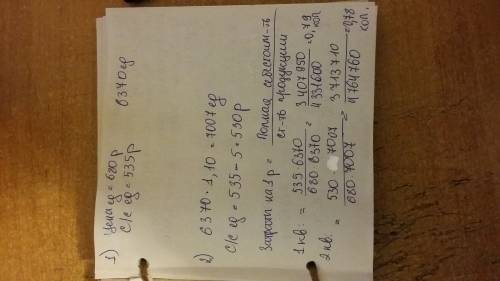 1) Цена ед = 680р
С/с ед = 535р 6370ед
2) 6370 · 1,10 = 7007 ед
С/с ед = 535 - 5 = 530р
Затраты на 1р = Полная себестоим-ть / ст-ть продукции
1 кв: = 535·6370 / 680·6370 = 3 407 950 / 4 331 600 = 0,79 коп
2 кв: = 530 · 7007 / 680·7007 = 3 713 710 / 4 764 760 = 0,78 коп.